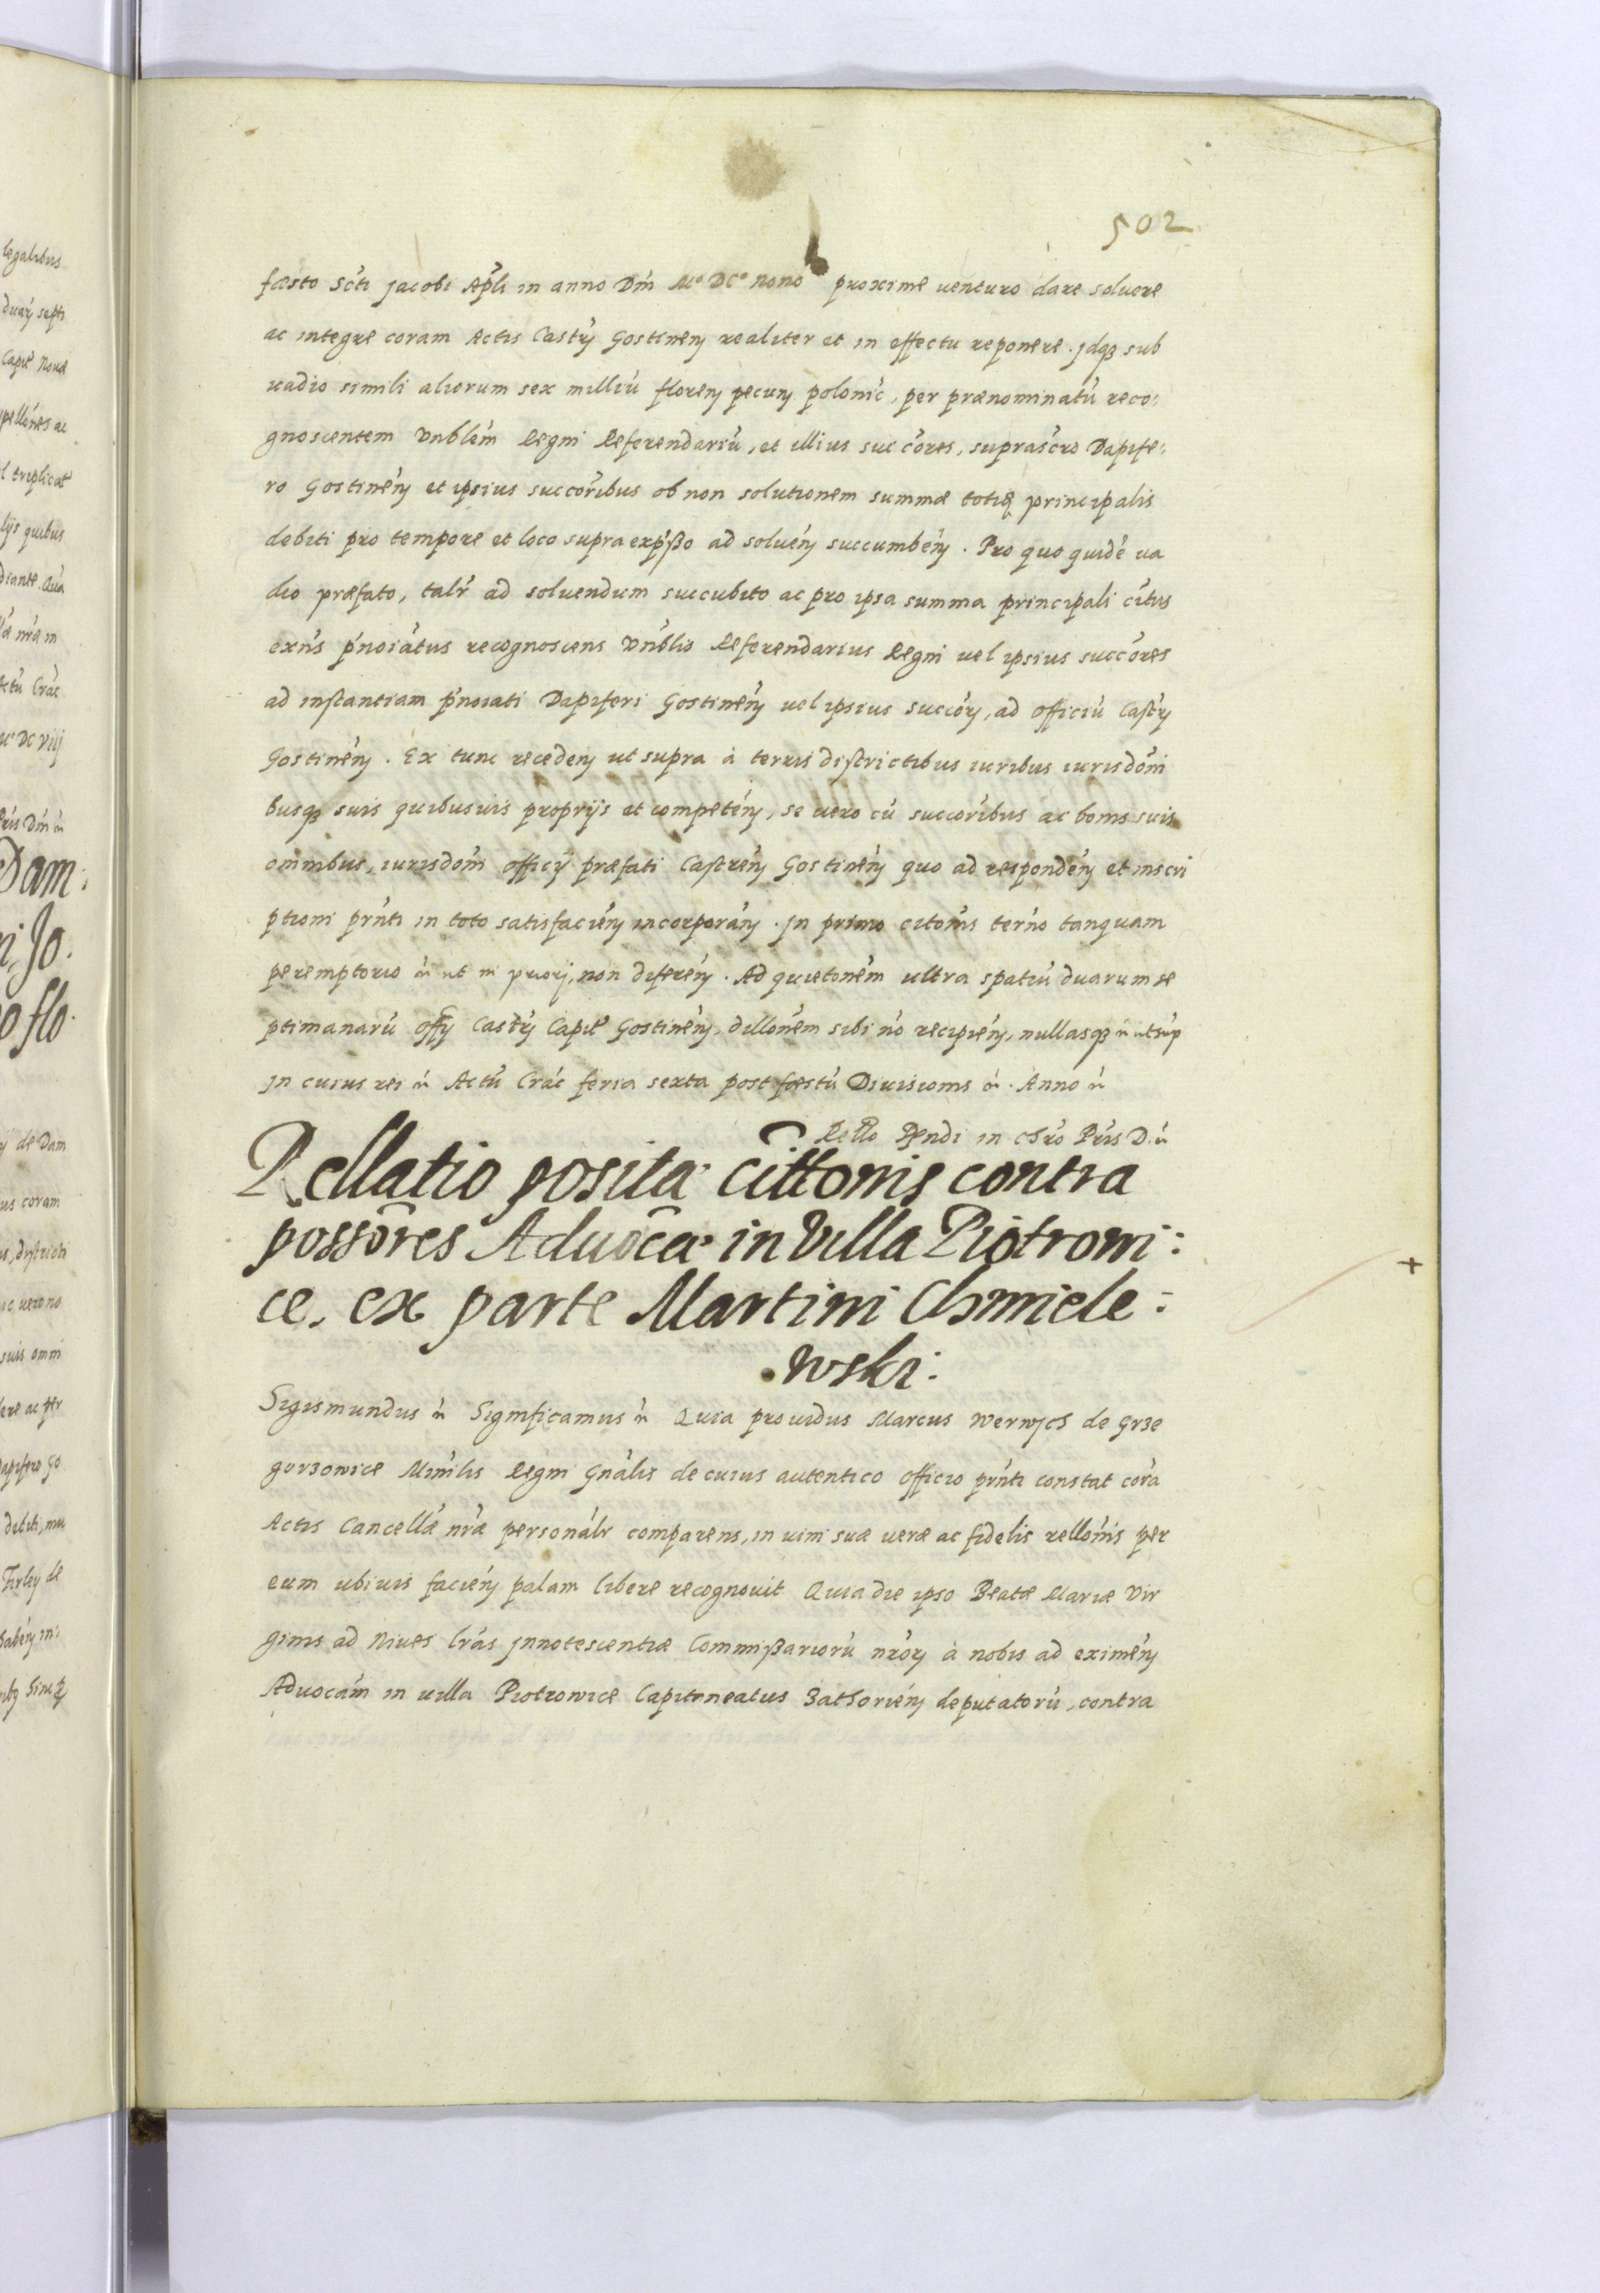 502
fæsto Scti Jacobi Apli in anno Dni Mº DCº nono proxime venturo dare solvere
ac integre coram Actis Castry Gostineny realiter et in effectu reponere. Jdqz sub
vadio simili aliorum sex milliu floreny pecuny polonic, per prænominatu reco:
gnoscentem Vnblem Regni Referendariu, et illius succores, suprascro Dapife:
ro Gostineny et ipsius succoribus ob non solutionem summæ totiq principalis
debiti pro tempore et loco supra exp̃sso ad solveny succumbeny. Pro quo quide va
dio præfato, talr ad solvendum succubito ac pro ipsa summa principali citus
exns pnoiatus recognoscens Vnblis Referendarius Regni vel ipsius succores
ad instantiam pnoiati Dapiferi Gostineny vel ipsius succory, ad officiu Castry
Gostineny. Ex tunc recedeny ut supra à terris districtibus iuribus iurisdoni
busqz suis quibusvis proprijs et competeny, se vero cu succoribus ac bonis suis
omnibus, iurisdoni officij præfati Castreny Gostineny quo ad respondeny et inscri
ptioni prnti in toto satisfacieny incorporany. Jn primo citonis terno tanquam
peremptorio ut in priorj, non difereny. Ad quietonem ultra spatiu duarum se
ptimanaru Offy Castry Capil Gostineny, dillonem sibi no recipieny, nullasqz ut sup
Jn cuius rei Actu Crac feria sexta post fæstu Divisionis. Anno
Rello Rndi in chro Pris D.
Rellatio posita cittonis contra
possores Advoca in Villa Piotrowi:
ce, ex parte Martini Chmiele:
wski:
Sigismundus Significamus Quia providus Marcus Wernych de Grze
gorzowice Minilis Regni Gnalis de cuius autentico officio prnti constat cora
Actis Cancellæ nræ personalr comparens, in vim suæ veræ ac fidelis rellonis per
eum ubivis facieny palam libere recognovit Quia die ipso Beatæ Mariæ Vir
ginis ad Nives lras Jnnotescentiæ Commissarioru nrory à nobis ad eximeny
Advocam in villa Piotrowice Capitaneatus Zathorieny deputatoru, contra